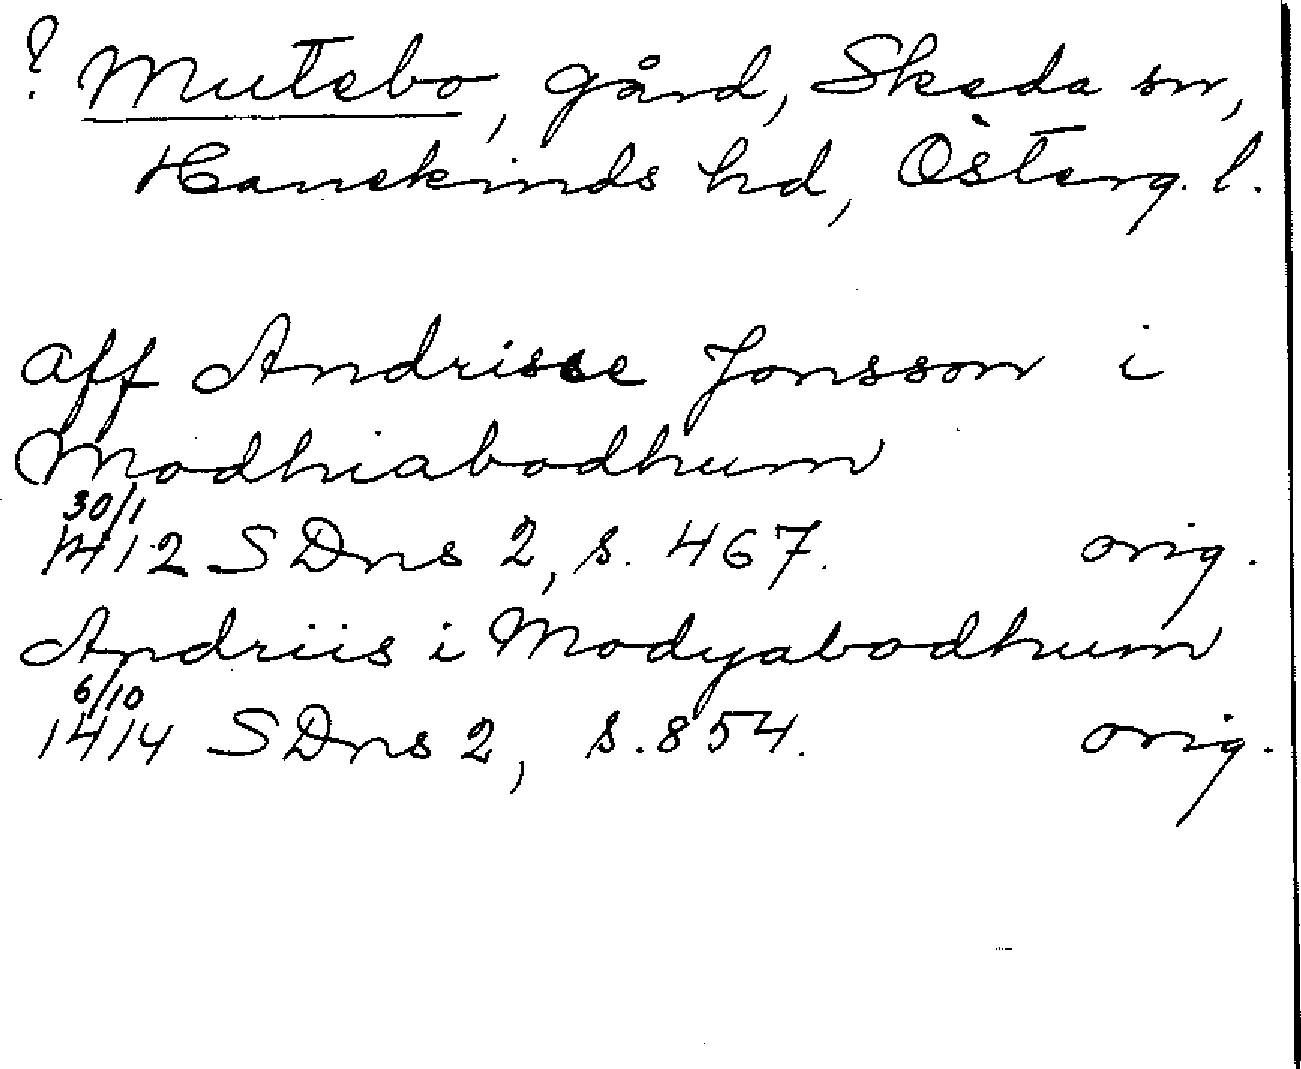 ? Mutebo, gård, Skeda sn,
Hanekinds hd, Österg. l.
aff Andrisse Jonsson i
Modhiabodhum
30/1
1412 SDns 2, s. 467. orig.
Andriis i Modyabodhum
6/10
1414 SDns 2, s. 854. orig.